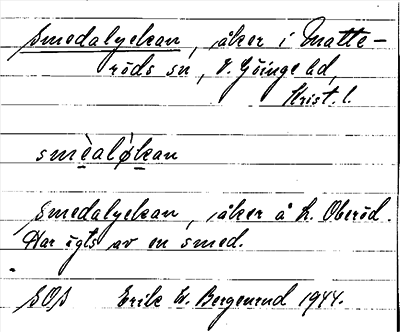 Smedalyckan, åker i Matte-
röds sn, V. Göinge hd,
Krist. l.
smèaløkan
Smedalyckan, åker å L. Oberöd.
Har ägts av en smed.
SOS Erik W. Bergenrud 1944.